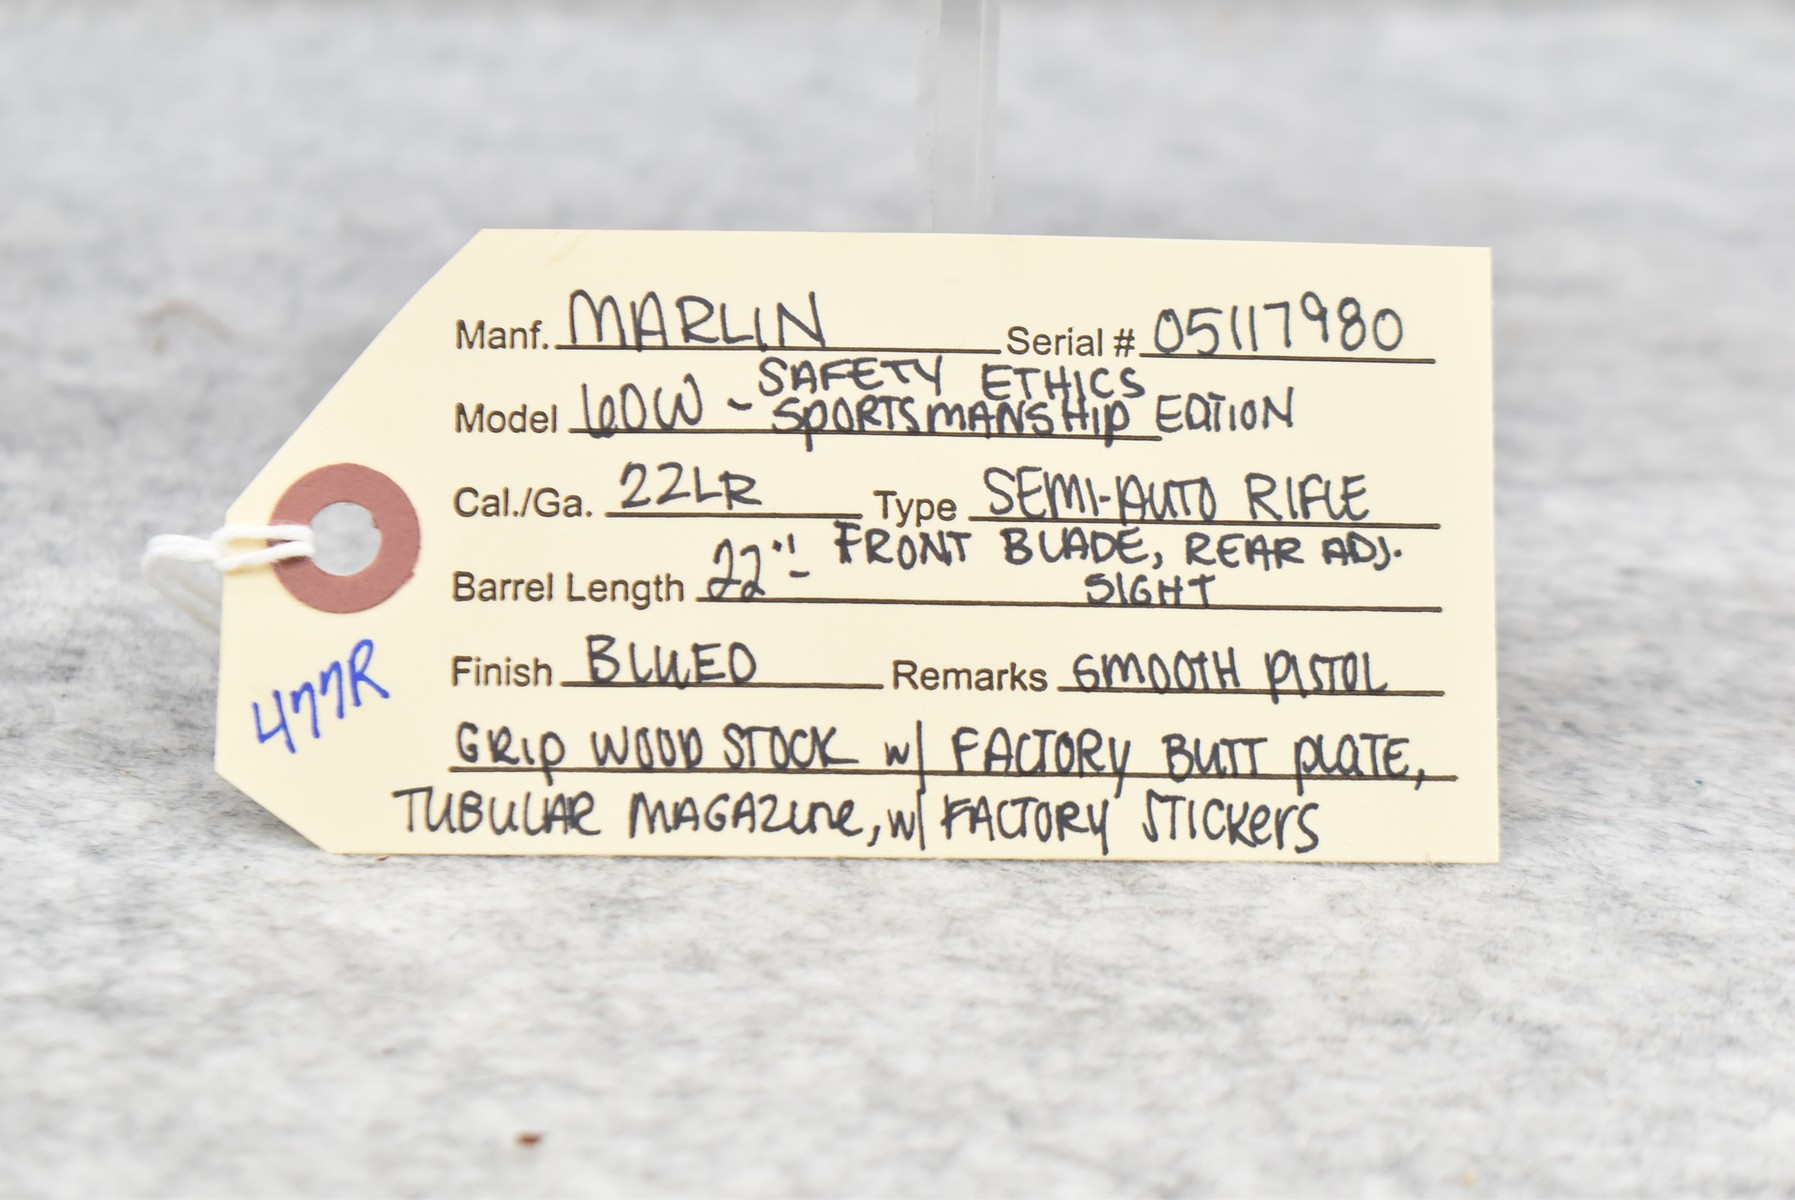 Manf. MARLIN Serial # 05117980
SAFETY ETHICS
Model 60W - SPORTSMANSHIP EDTION
Cal./Ga. 22LR Type SEMI-AUTO RIFLE
Barrel Length 22" - FRONT BLADE, REAR ADJ.
SIGHT
Finish BLUED Remarks SMOOTH PISTOL
GRIP WOOD STOCK w/ FACTORY BUTT PLATE,
TUBULAR MAGAZINE, w/ FACTORY STICKERS
477R